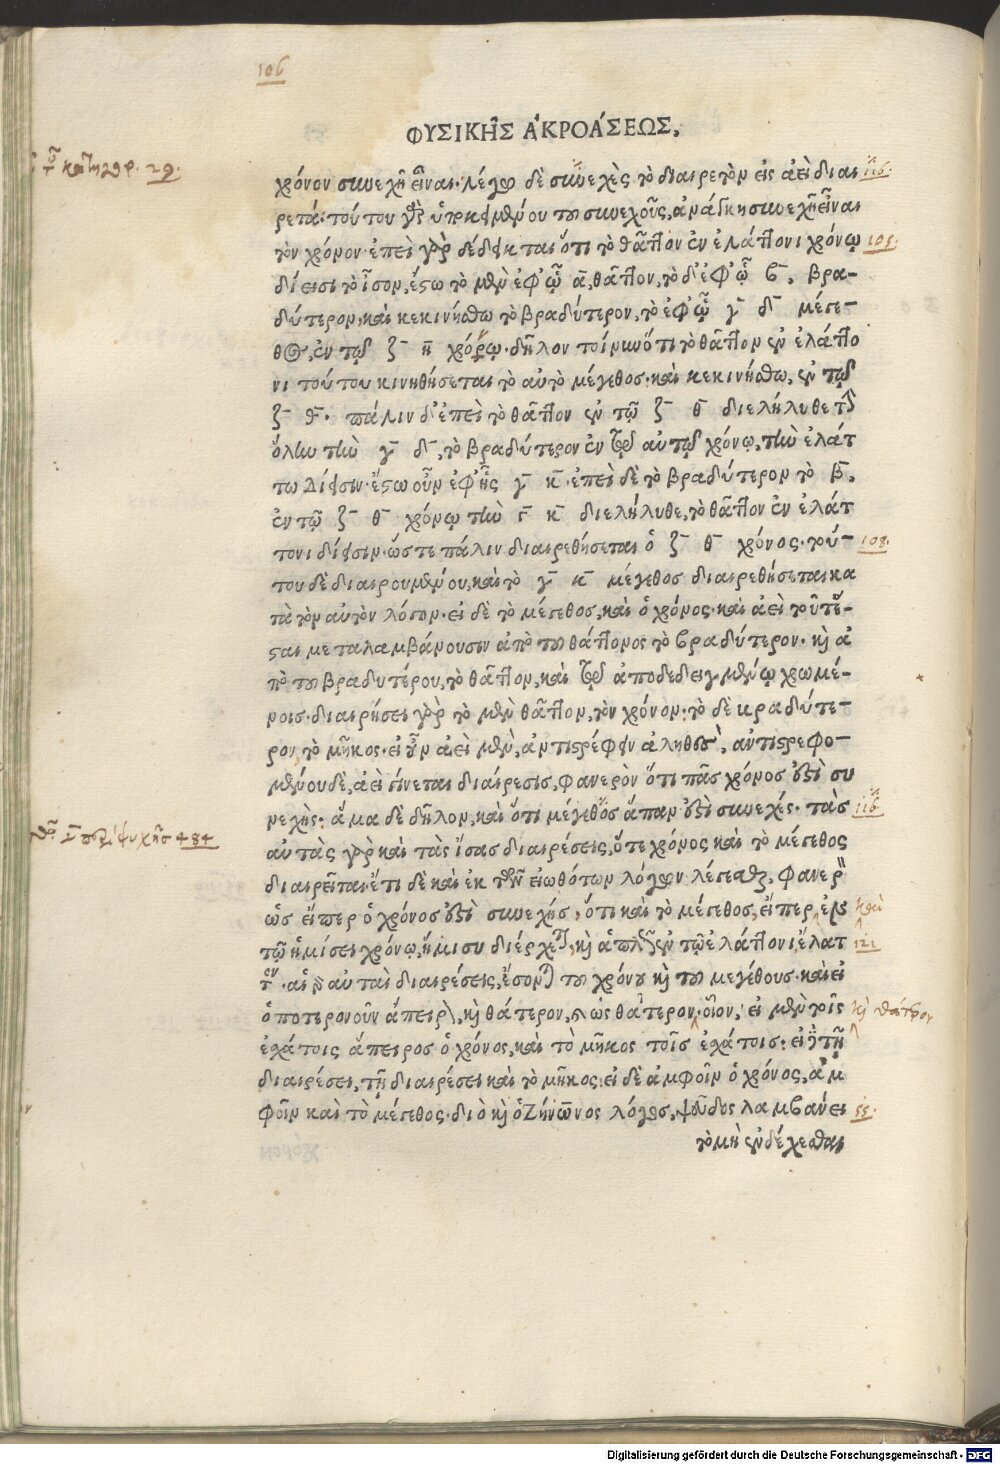 106
ΦΥΣΙΚΗ͂Σ ἈΚΡΟΆΣΕΩΣ,
χρόνον συνεχῆ εἶναι. λέγω δὲ συνεχὲς τὸ διαιρετὸν εἰς ἀεὶ διαι
ρετά. τούτου γὰρ ὑποκειμένου τοῦ συνεχοῦς, ἀνάγκη συνεχῆ εἶναι
τὸν χρόνον. ἐπεὶ γὰρ δέδεικται ὅτι τὸ θᾶττον ἐν ἐλάττονι χρόνῳ 105.
δίεισι τὸ ἴσον, ἔστω τὸ μὲν ἐφ' ᾧ ᾱ, θᾶττον, τὸ δ' ἐφ' ᾧ β̄, βρα-
δύτερον, καὶ κεκινήσθω τὸ βραδύτερον, τὸ ἐφ' ᾧ γ̄ δ̄ μέγε-
θος, ἐν τῷ ζ̄ η̄ χρόνῳ. δῆλον τοίνυν ὅτι τὸ θᾶττον ἐν ἐλάττο
νι τούτου κινηθήσεται τὸ αὐτὸ μέγεθος. καὶ κεκινήσθω, ἐν τῷ
ζ̄ θ̄. πάλιν δ' ἐπεὶ τὸ θᾶττον ἐν τῷ ζ̄ θ̄ διελήλυθε τὴν
ὅλην τὴν γ̄ δ̄, τὸ βραδύτερον ἐν τῷ αὐτῷ χρόνῳ, τὴν ἐλάτ
τω δίεισιν. ἔστω οὖν ἐφ' ἧς γ̄ κ̄. ἐπεὶ δὲ τὸ βραδύτερον τὸ β̄,
ἐν τῷ ζ̄ θ̄ χρόνῳ τὴν γ̄ κ̄ διελήλυθε, τὸ θᾶττον ἐν ἐλάτ
τονι δίεισιν. ὥστε πάλιν διαιρεθήσεται ὁ ζ̄ θ̄ χρόνος. τού- 108.
του δὲ διαιρουμένου, καὶ τὸ γ̄ κ̄ μέγεθος διαιρεθήσεται κα
τὰ τὸν αὐτὸν λόγον. εἰ δὲ τὸ μέγεθος, καὶ ὁ χρόνος. καὶ ἀεὶ τοῦτ' ἔ-
σται μεταλαμβάνουσιν ἀπὸ τοῦ θάττονος τὸ βραδύτερον. καὶ ἀ
πὸ τοῦ βραδυτέρου, τὸ θᾶττον, καὶ τῷ ἀποδεδειγμένῳ χρωμέ-
νοις. διαιρήσει γὰρ τὸ μὲν θᾶττον, τὸν χρόνον: τὸ δὲ βραδύτε-
ρον, τὸ μῆκος. εἰ οὖν ἀεὶ μὲν, ἀντιστρέφειν ἀληθὲς, ἀντιστρεφο-
μένου δὲ, ἀεὶ γίνεται διαίρεσις, φανερὸν ὅτι πᾶς χρόνος ἐστὶ συ
νεχής: ἅμα δὲ δῆλον, καὶ ὅτι μέγεθος ἅπαν ἐστὶ συνεχές. τὰς
αὐτὰς γὰρ καὶ τὰς ἴσας διαιρέσεις, ὅ τε χρόνος καὶ τὸ μέγεθος
διαιρεῖται. ἔτι δὲ καὶ ἐκ τῶν εἰωθότων λόγων λέγεσθαι, φανερὸν
ὡς εἴπερ ὁ χρόνος ἐστὶ συνεχής, ὅτι καὶ τὸ μέγεθος, εἴπερ, ἐν
τῷ ἡμίσει χρόνῳ, ἥμισυ διέρχεται, καὶ ἁπλῶς ἐν τῷ ἐλάττονι, ἔλατ 121
τον. αἱ γὰρ αὐταὶ διαιρέσεις, ἔσονται τοῦ χρόνου καὶ τοῦ μεγέθους. καὶ εἰ
ὁποτερονοῦν ἄπειρον, καὶ θάτερον, καὶ ὡς θάτερον. οἷον, εἰ μὲν τοῖς
ἐσχάτοις ἄπειρος ὁ χρόνος, καὶ τὸ μῆκος τοῖς ἐσχάτοις: εἰ δὲ τῇ
διαιρέσει, τῇ διαιρέσει καὶ τὸ μῆκος. εἰ δὲ ἀμφοῖν ὁ χρόνος, ἀμ
φοῖν καὶ τὸ μέγεθος. διὸ καὶ ὁ Ζήνωνος λόγος, ψεῦδος λαμβάνει
τὸ μὴ ἐνδέχεσθαι
Digitalisierung gefördert durch die Deutsche Forschungsgemeinschaft - DFG